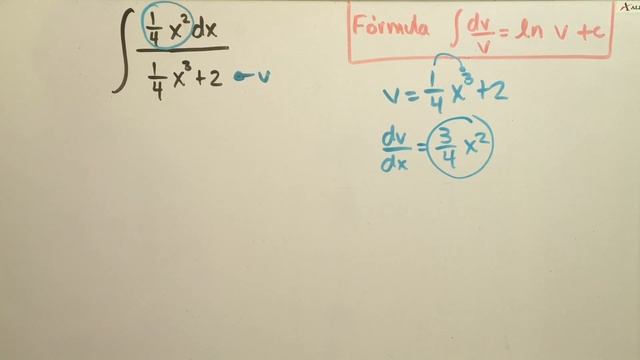 ∫ (1/4 x² dx) / (1/4 x³ + 2) ← v
Fórmula ∫ dv/v = ln v + c
v = 1/4 x³ + 2
dv/dx = 3/4 x²